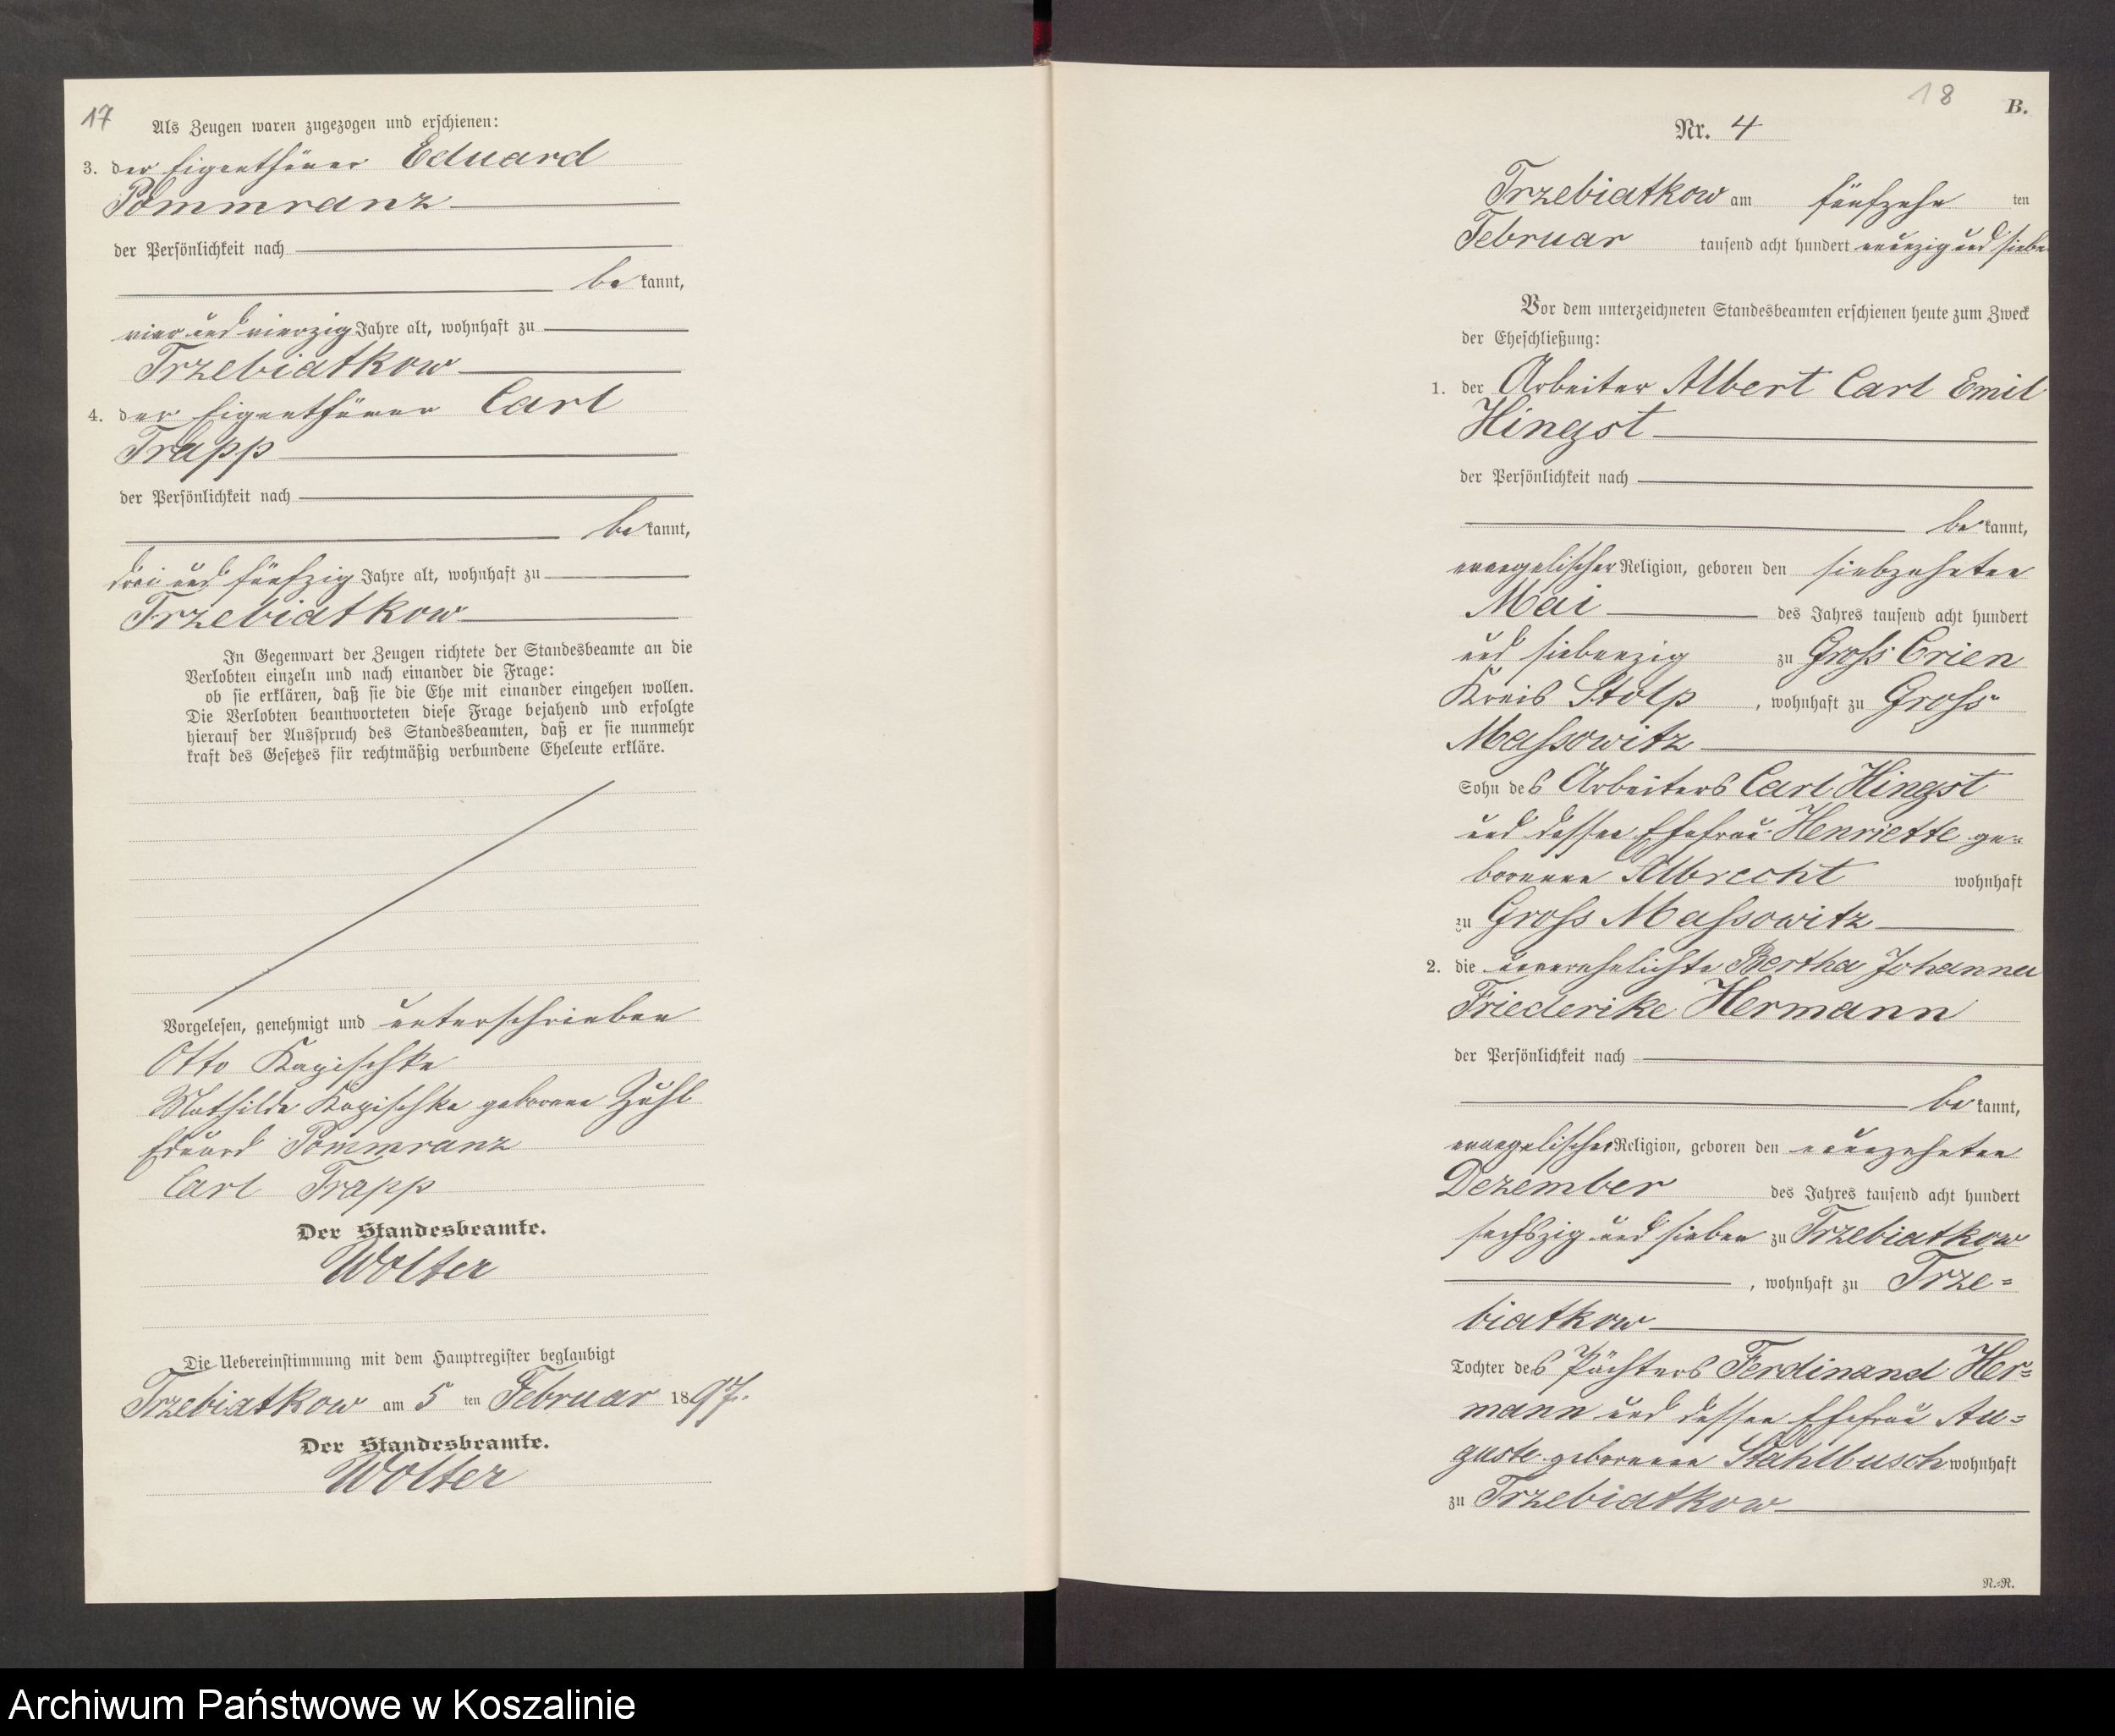 17
Als Zeugen waren zugezogen und erschienen:
3. der Eigenthümer Eduard
Pommranz
der Persönlichkeit nach
bekannt,
vier und vierzig Jahre alt, wohnhaft zu
Trzebiatkow
4. der Eigenthümer Carl
Trapp
der Persönlichkeit nach
bekannt,
drei und fünfzig Jahre alt, wohnhaft zu
Trzebiatkow
In Gegenwart der Zeugen richtete der Standesbeamte an die
Verlobten einzeln und nach einander die Frage:
ob sie erklären, daß sie die Ehe mit einander eingehen wollen.
Die Verlobten beantworteten diese Frage bejahend und erfolgte
hierauf der Ausspruch des Standesbeamten, daß er sie nunmehr
kraft des Gesetzes für rechtmäßig verbundene Eheleute erkläre.
Vorgelesen, genehmigt und unterschrieben
Otto Kazischke
Mathilde Kazischke geborene Zühl
Eduard Pommranz
Carl Trapp
Der Standesbeamte.
Wolter
Die Uebereinstimmung mit dem Hauptregister beglaubigt
Trzebiatkow am 5 ten Februar 1897.
Der Standesbeamte.
Wolter
18
B.
Nr. 4
Trzebiatkow am fünfzehn ten
Februar tausend acht hundert neunzig und sieben
Vor dem unterzeichneten Standesbeamten erschienen heute zum Zweck
der Eheschließung:
1. der Arbeiter Albert Carl Emil
Hingst
der Persönlichkeit nach
bekannt,
evangelischer Religion, geboren den siebzehnten
Mai des Jahres tausend acht hundert
und siebenzig zu Gross Crien
Kreis Stolp, wohnhaft zu Gross
Massowitz
Sohn des Arbeiters Carl Hingst
und dessen Ehefrau Henriette ge=
borenen Albrecht wohnhaft
zu Gross Massowitz
2. die unverehelichte Bertha Johanna
Friederike Hermann
der Persönlichkeit nach
bekannt,
evangelischer Religion, geboren den neunzehnten
Dezember des Jahres tausend acht hundert
sechszig und sieben zu Trzebiatkow
, wohnhaft zu Trze=
biatkow
Tochter des Pächters Ferdinand Her=
mann und dessen Ehefrau Au=
guste geborenen Stahlbusch wohnhaft
zu Trzebiatkow
N.=R.
Archiwum Państwowe w Koszalinie